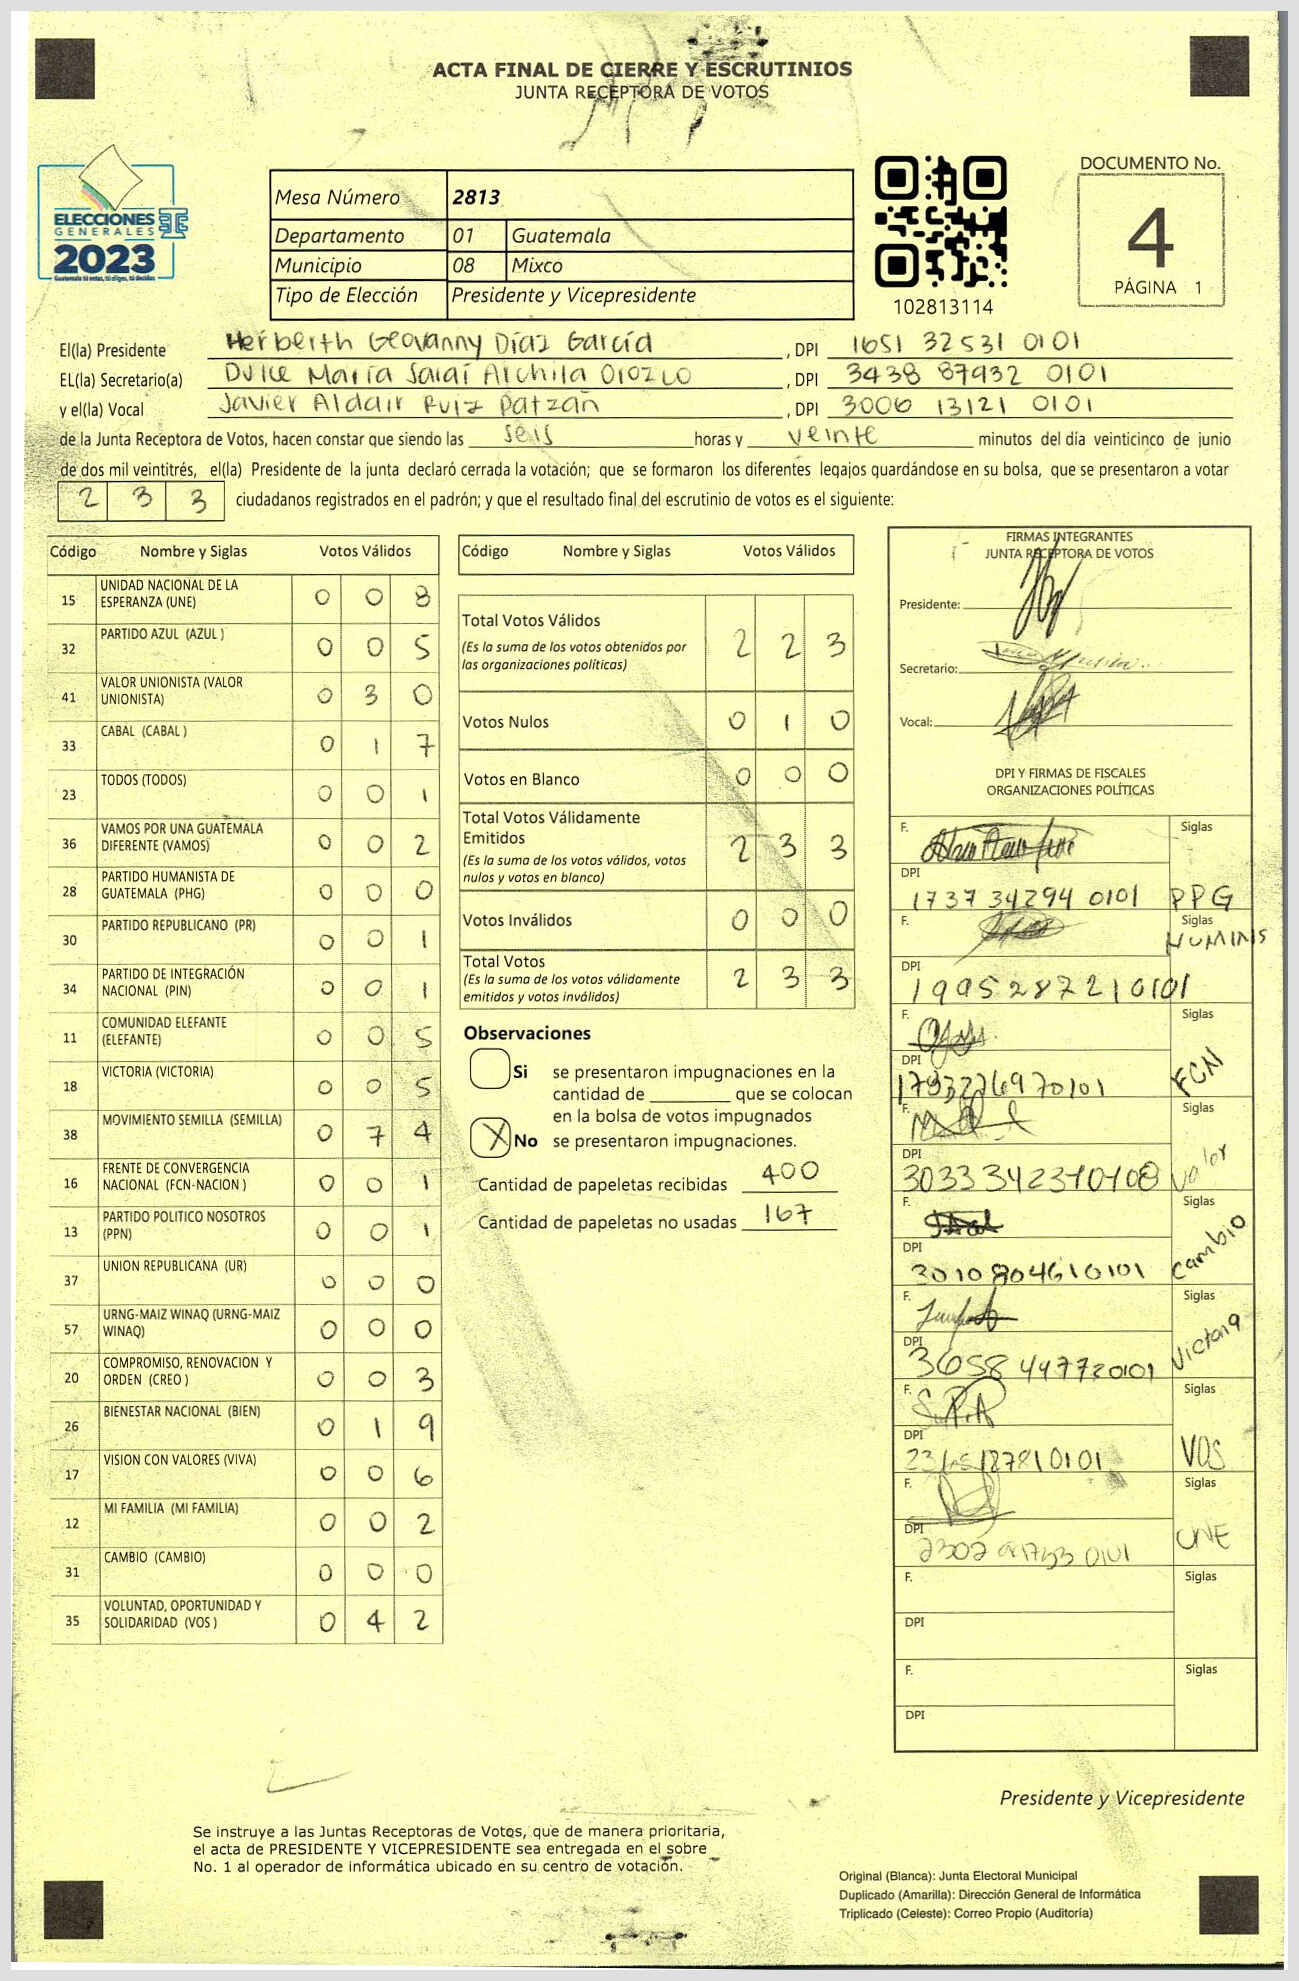 ACTA FINAL DE CIERRE Y ESCRUTINIOS
JUNTA RECEPTORA DE VOTOS
ELECCIONES
GENERALES
2023
Guatemala tú votas, tú eliges, tú decides
Mesa Número 2813
Departamento 01 Guatemala
Municipio 08 Mixco
Tipo de Elección Presidente y Vicepresidente
102813114
DOCUMENTO No.
4
PÁGINA 1
El(la) Presidente Herberth Geovanny Díaz García , DPI 1651 32531 0101
EL(la) Secretario(a) Dulce María Saraí Archila Orozco , DPI 3438 87932 0101
y el(la) Vocal Javier Aldair Ruiz Patzán , DPI 3006 13121 0101
de la Junta Receptora de Votos, hacen constar que siendo las seis horas y veinte minutos del día veinticinco de junio
de dos mil veintitrés, el(la) Presidente de la junta declaró cerrada la votación; que se formaron los diferentes legajos guardándose en su bolsa, que se presentaron a votar
2 3 3 ciudadanos registrados en el padrón; y que el resultado final del escrutinio de votos es el siguiente:
Código Nombre y Siglas Votos Válidos
15 UNIDAD NACIONAL DE LA ESPERANZA (UNE) 0 0 8
32 PARTIDO AZUL (AZUL ) 0 0 5
41 VALOR UNIONISTA (VALOR UNIONISTA) 0 3 0
33 CABAL (CABAL ) 0 1 7
23 TODOS (TODOS) 0 0 1
36 VAMOS POR UNA GUATEMALA DIFERENTE (VAMOS) 0 0 2
28 PARTIDO HUMANISTA DE GUATEMALA (PHG) 0 0 0
30 PARTIDO REPUBLICANO (PR) 0 0 1
34 PARTIDO DE INTEGRACIÓN NACIONAL (PIN) 0 0 1
11 COMUNIDAD ELEFANTE (ELEFANTE) 0 0 5
18 VICTORIA (VICTORIA) 0 0 5
38 MOVIMIENTO SEMILLA (SEMILLA) 0 7 4
16 FRENTE DE CONVERGENCIA NACIONAL (FCN-NACION ) 0 0 1
13 PARTIDO POLITICO NOSOTROS (PPN) 0 0 1
37 UNION REPUBLICANA (UR) 0 0 0
57 URNG-MAIZ WINAQ (URNG-MAIZ WINAQ) 0 0 0
20 COMPROMISO, RENOVACION Y ORDEN (CREO ) 0 0 3
26 BIENESTAR NACIONAL (BIEN) 0 1 9
17 VISION CON VALORES (VIVA) 0 0 6
12 MI FAMILIA (MI FAMILIA) 0 0 2
31 CAMBIO (CAMBIO) 0 0 0
35 VOLUNTAD, OPORTUNIDAD Y SOLIDARIDAD (VOS ) 0 4 2
Código Nombre y Siglas Votos Válidos
Total Votos Válidos 2 2 3
(Es la suma de los votos obtenidos por
las organizaciones políticas)
Votos Nulos 0 1 0
Votos en Blanco 0 0 0
Total Votos Válidamente
Emitidos 2 3 3
(Es la suma de los votos válidos, votos
nulos y votos en blanco)
Votos Inválidos 0 0 0
Total Votos 2 3 3
(Es la suma de los votos válidamente
emitidos y votos inválidos)
Observaciones
Si se presentaron impugnaciones en la
cantidad de ________ que se colocan
en la bolsa de votos impugnados
X No se presentaron impugnaciones.
Cantidad de papeletas recibidas 400
Cantidad de papeletas no usadas 167
FIRMAS INTEGRANTES
JUNTA RECEPTORA DE VOTOS
Presidente:
Secretario:
Vocal:
DPI Y FIRMAS DE FISCALES
ORGANIZACIONES POLÍTICAS
F. Siglas
DPI
1737 34294 0101 PPG
F. Siglas
HUMINIS
DPI
1995287210101
F. Siglas
DPI FCN
F. Siglas
DPI Valor
F. Siglas
DPI Cambio
3010804610101
F. Siglas
DPI
3658 447720101
F. Siglas
DPI VOS
F. Siglas
DPI UNE
F. Siglas
DPI
F. Siglas
DPI
Presidente y Vicepresidente
Se instruye a las Juntas Receptoras de Votos, que de manera prioritaria,
el acta de PRESIDENTE Y VICEPRESIDENTE sea entregada en el sobre
No. 1 al operador de informática ubicado en su centro de votación.
Original (Blanca): Junta Electoral Municipal
Duplicado (Amarilla): Dirección General de Informática
Triplicado (Celeste): Correo Propio (Auditoría)